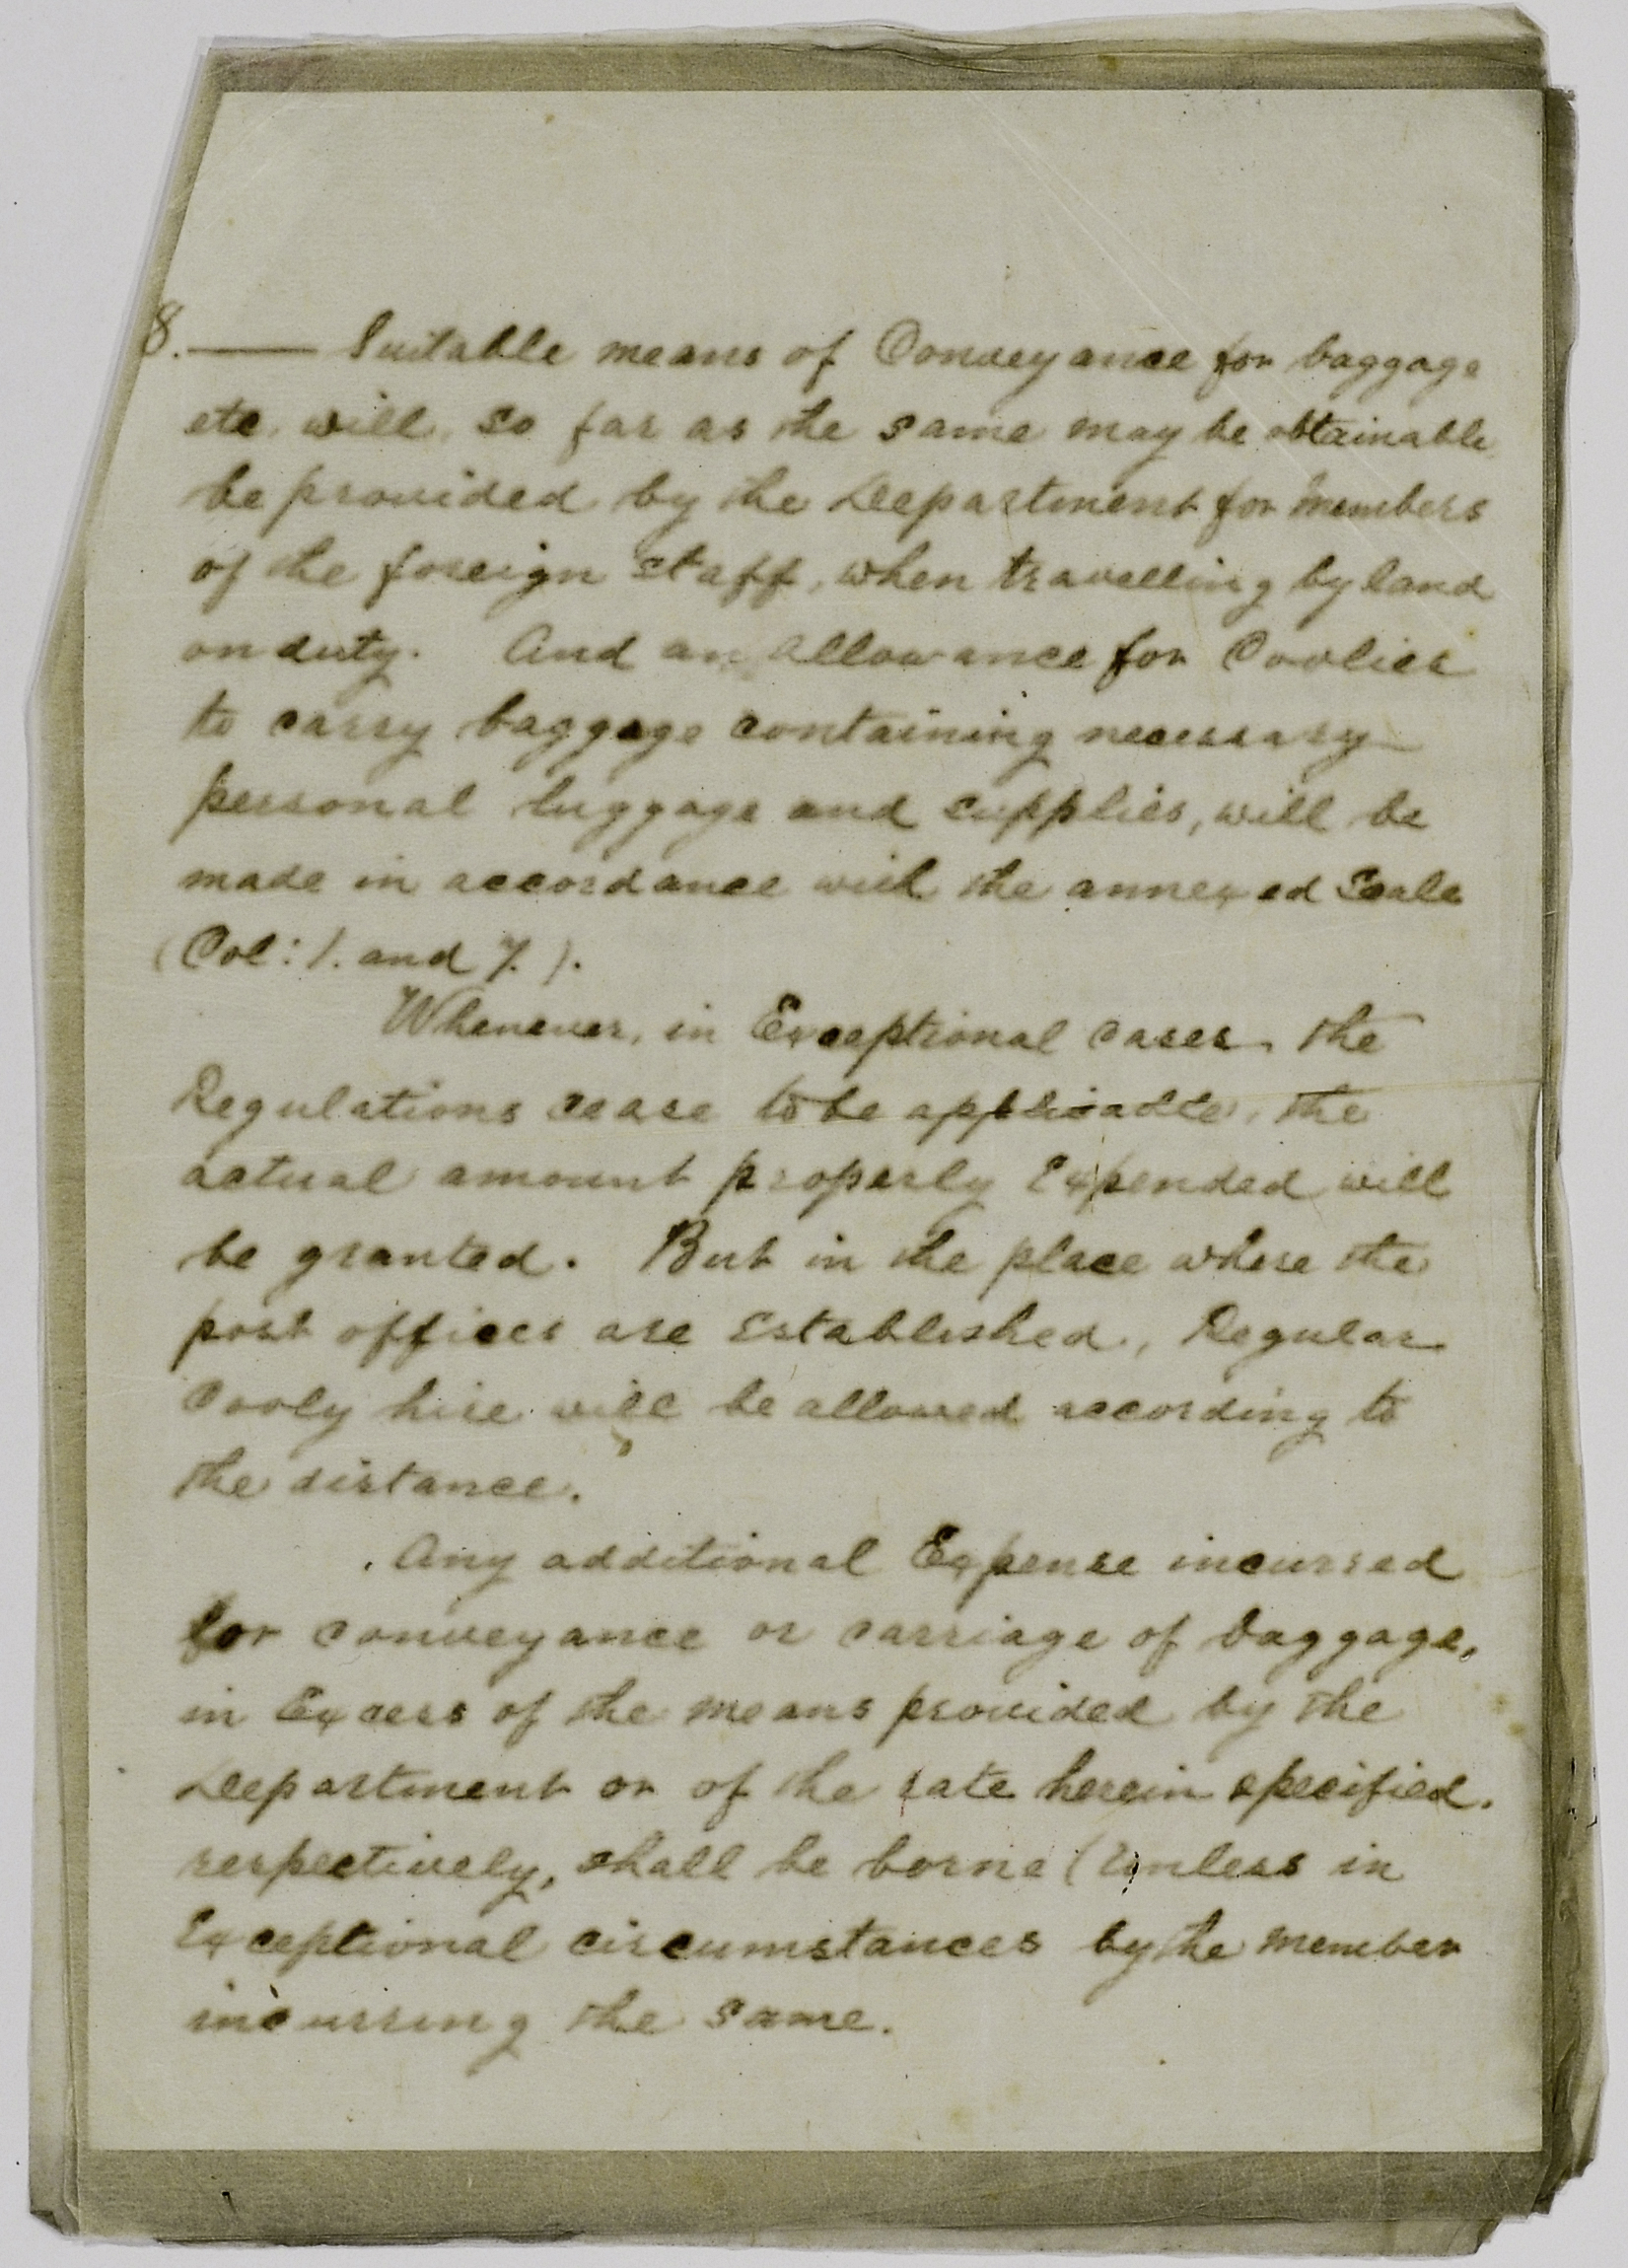 8. —— Suitable means of Conveyance for baggage
etc. will, so far as the same may be obtainable,
be provided by the Department for members
of the foreign staff, when travelling by land
on duty. And an allowance for Coolies
to carry baggage containing necessary
personal luggage and supplies, will be
made in accordance with the annexed Scale
(Col: 1. and 7.).
Whenever, in Exceptional cases, the
Regulations cease to be applicable, the
actual amount properly Expended will
be granted. But in the place where the
post offices are Established, Regular
Cooly hire will be allowed according to
the distance.
Any additional Expense incurred
for conveyance or carriage of baggage,
in Excess of the means provided by the
Department or of the rate herein specified.
respectively, shall be borne (Unless in
Exceptional circumstances by the member
incurring the same.